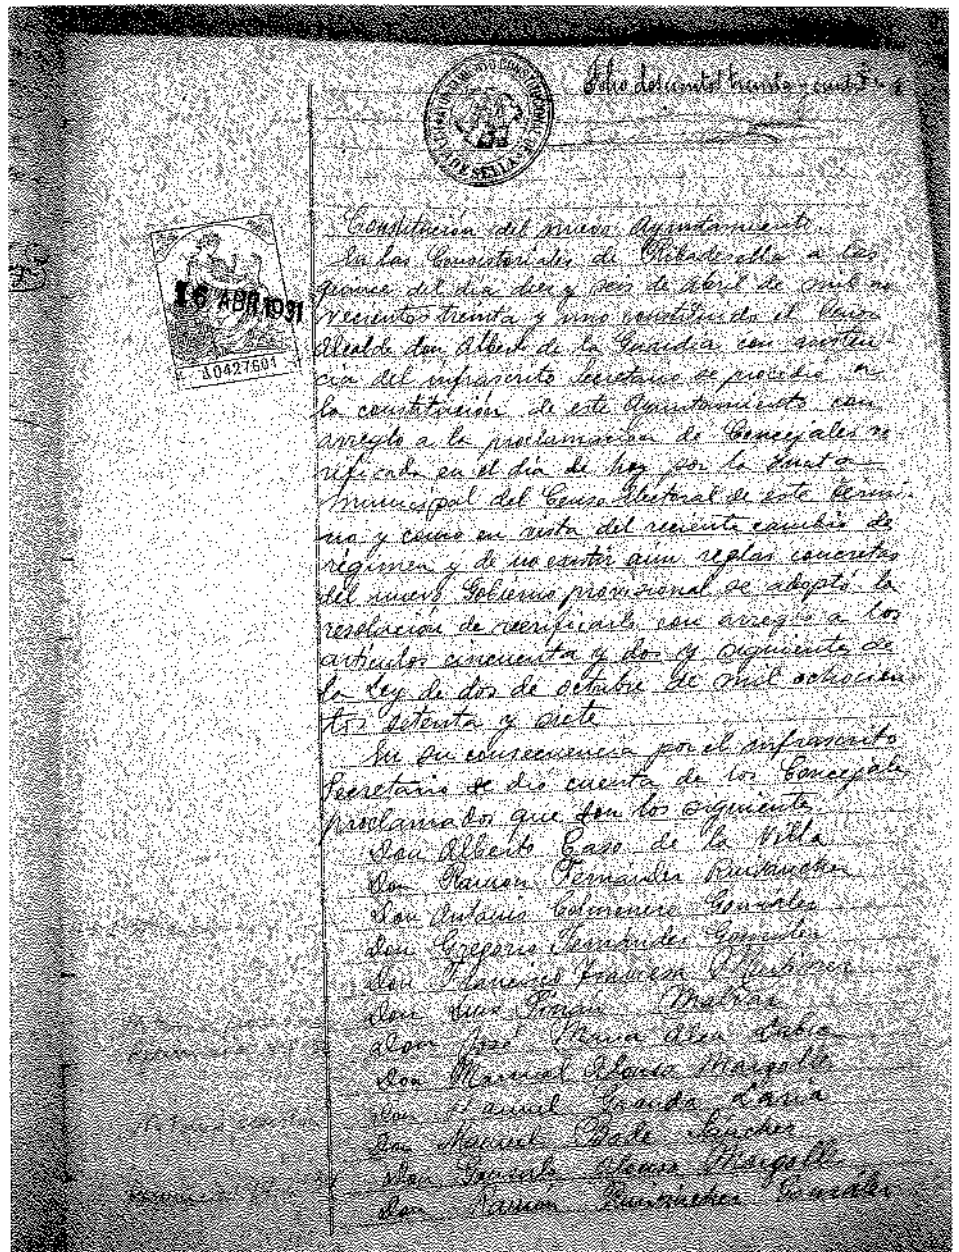 AYUNTAMIENTO CONSTITUCIONAL DE RIBADESELLA
Folio doscientos treinta y
Constitución del nuevo Ayuntamiento.
En las Consistoriales de Ribadesella a las
quince del día diez y seis de Abril de mil no
vecientos treinta y uno constituido el Señor
Alcalde don Alberto de la Guardia con asisten-
cia del infrascrito Secretario se procedió a
la constitución de este Ayuntamiento con
arreglo a la proclamación de Concejales ve
rificada en el día de hoy por la Junta
municipal del Censo electoral de este térmi-
no y como en vista del reciente cambio de
régimen y de no existir aún reglas concretas
del nuevo Gobierno provisional se adoptó la
resolución de verificarlo con arreglo a los
artículos cincuenta y dos y siguiente de
la Ley de dos de octubre de mil ochocien-
tos setenta y siete
En su consecuencia por el infrascrito
Secretario se dió cuenta de los Concejales
proclamados que son los siguiente.
Don Alberto Caso de la Villa
Don Ramón Fernández Ruisánchez
Don Antonio Colmenero González
Don Gregorio Fernández González
Don Francisco Martínez
Don Luis Piñán Malvar
Don José María Labra
Don Manuel Alonso Margolles
Don Manuel Granda
Don Manuel Sánchez
Don Gonzalo Alonso Margolles
Don Ramón Ruisánchez González
16 ABR 1931
A0427601